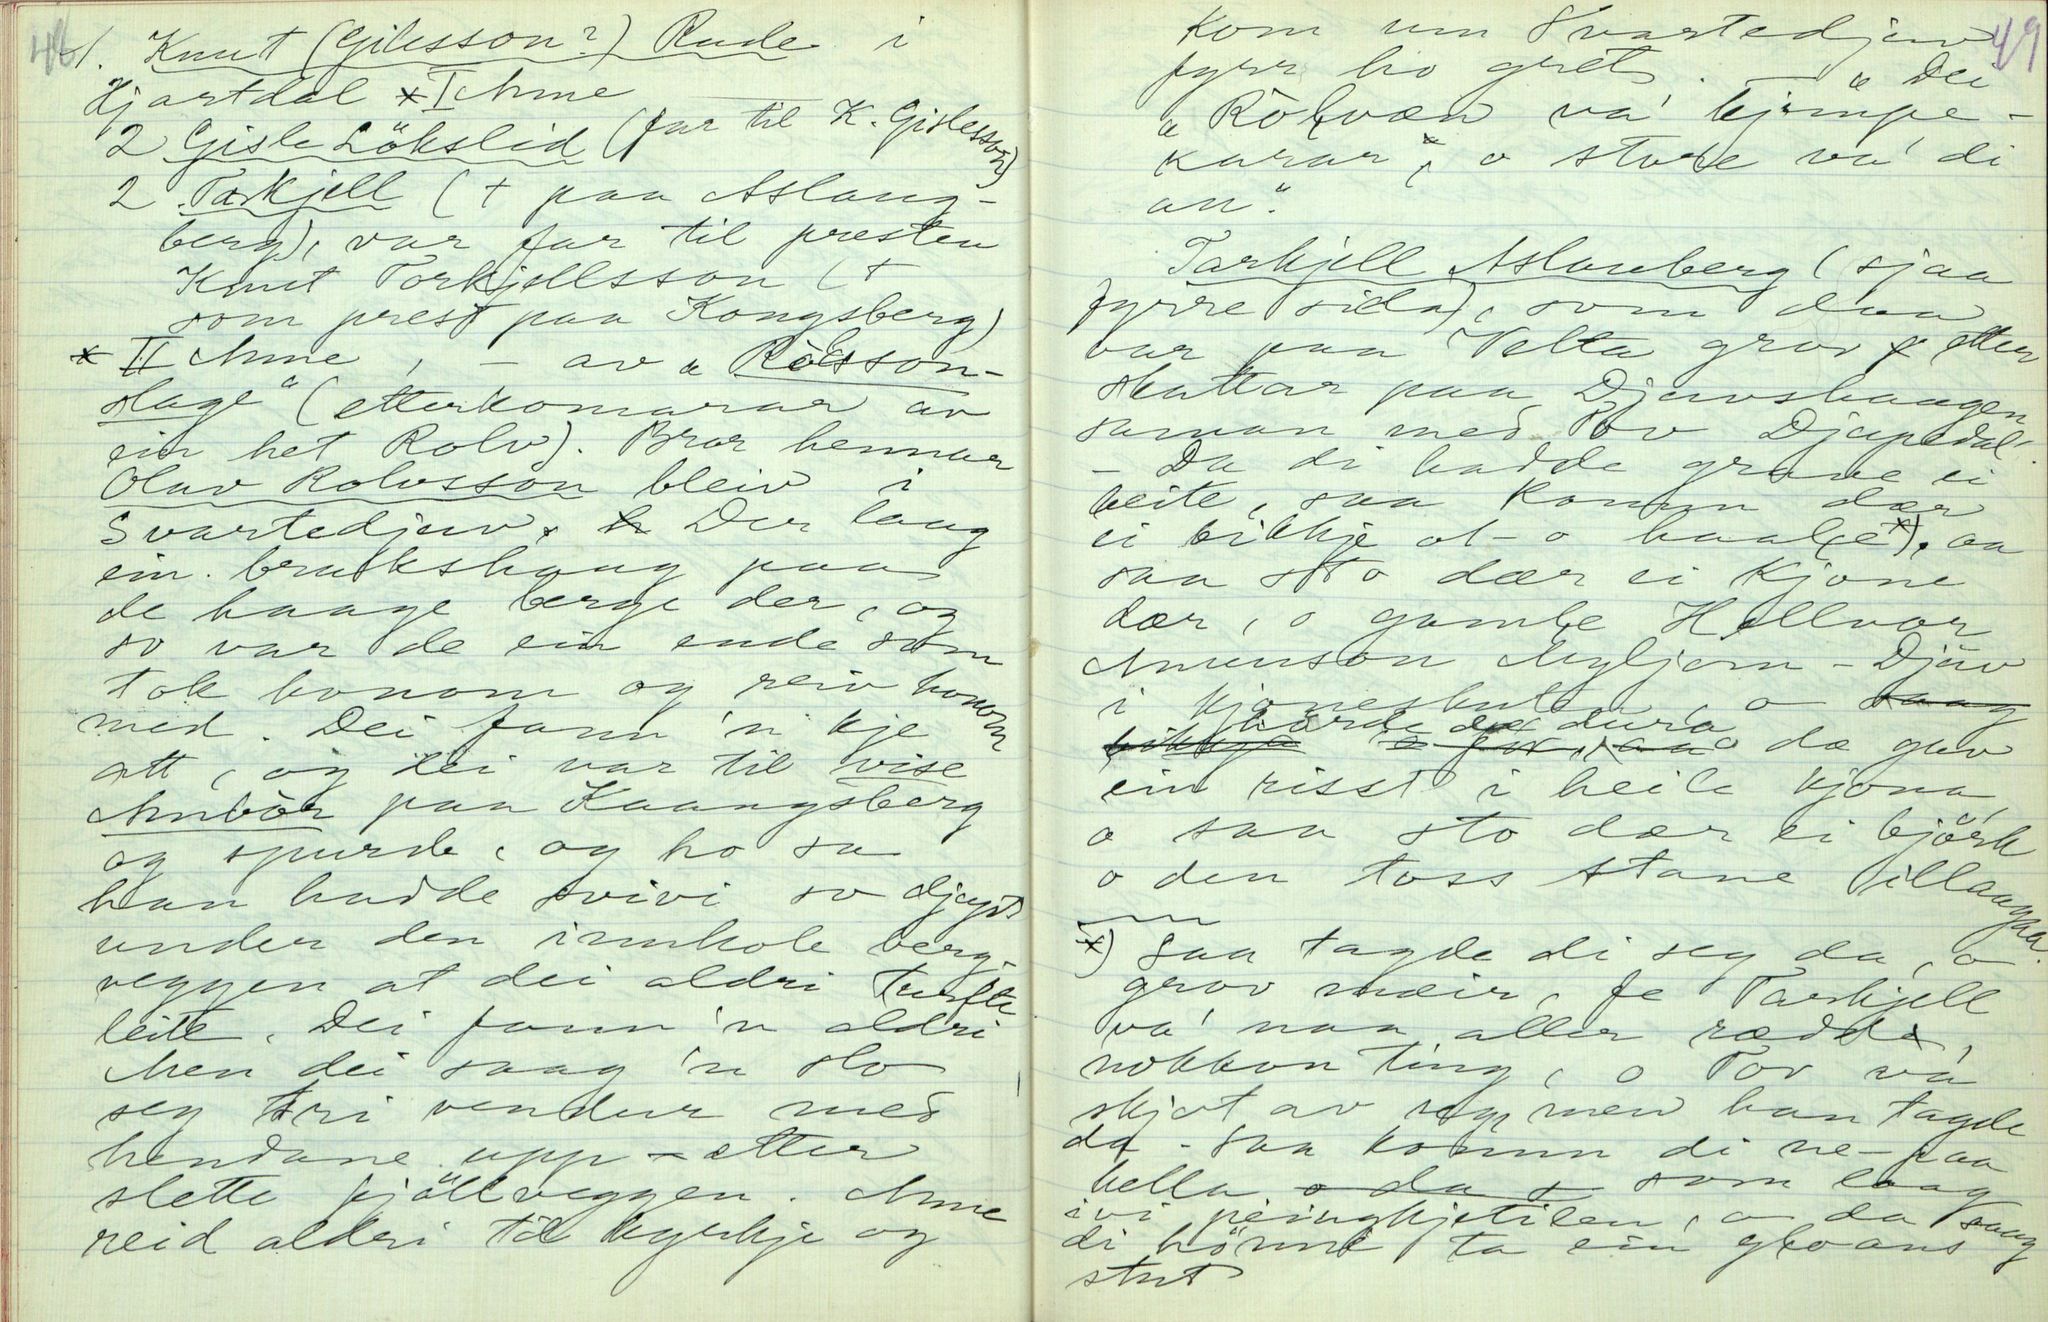 46
1. Knut (Gilesson?) Rude i
Hjartdal x I Anne
2 Gisle Lökslid (far til K. Gislesson)
2 Tarkjell (+ paa Aslaug-
berg), var far til presten
Knut Torkjellsson (+
som prest paa Kongsberg)
x II Anne, - av „Rolsson-
slage" (etterkomarar av
ein het Rolv). Bror hennar
Olav Rolvsson bleiv i
Svartedjuv. Der laag
ein brukshaug paa
de haage berge der, og
so var de ein ende som
tok honom og reiv honom
med. Dei fann 'n kje
att, og dei var til vise
Anbör paa Kaangsberg
og spurde, og ho sa
han hadde svivi so djupt
under den innhole berg-
veggen at dei aldri turfte
leite. Dei fann 'n aldri
Men dei saag 'n slo
seg tri vendur med
hendane upp-etter
slette fjöllveggen. Anne
reid aldri til kyrkje og
49
kom um Svartedjuv
fyrr ho gret. — „Dei
„Rolvæn va' kjempe-
karar", o store va' di
an".
Tarkjell Aslauberg (sjaa
fyrre sida), som daa
var paa Velta grov etter
skattar paa Djuvshaugen
saman med Tov Djupedal.
- Da di hadde grave ei
beite, saa komm dær
ei bikkje ot-o haale x), aa
saa sto dær ei kjone
dær, o gamle Hellvor
Amunson Mybjørn-Djuv
i kjoneskuta, o saag
hörde de dura
o de gav
ein risst i heile kjona,
o saa sto dær ei björk
o den toss stane illaagaa.
x) Saa tagde di seg da, o
grov meir, fe Tarkjell
va' naa aller rædde
nokkon ting, o Tov va'
skjot av seg men han tagde
da - saa komm di ne-paa
hella o da som laag
ivi peingkjetilen, o da saag
di hönni ta ein gloans
stut